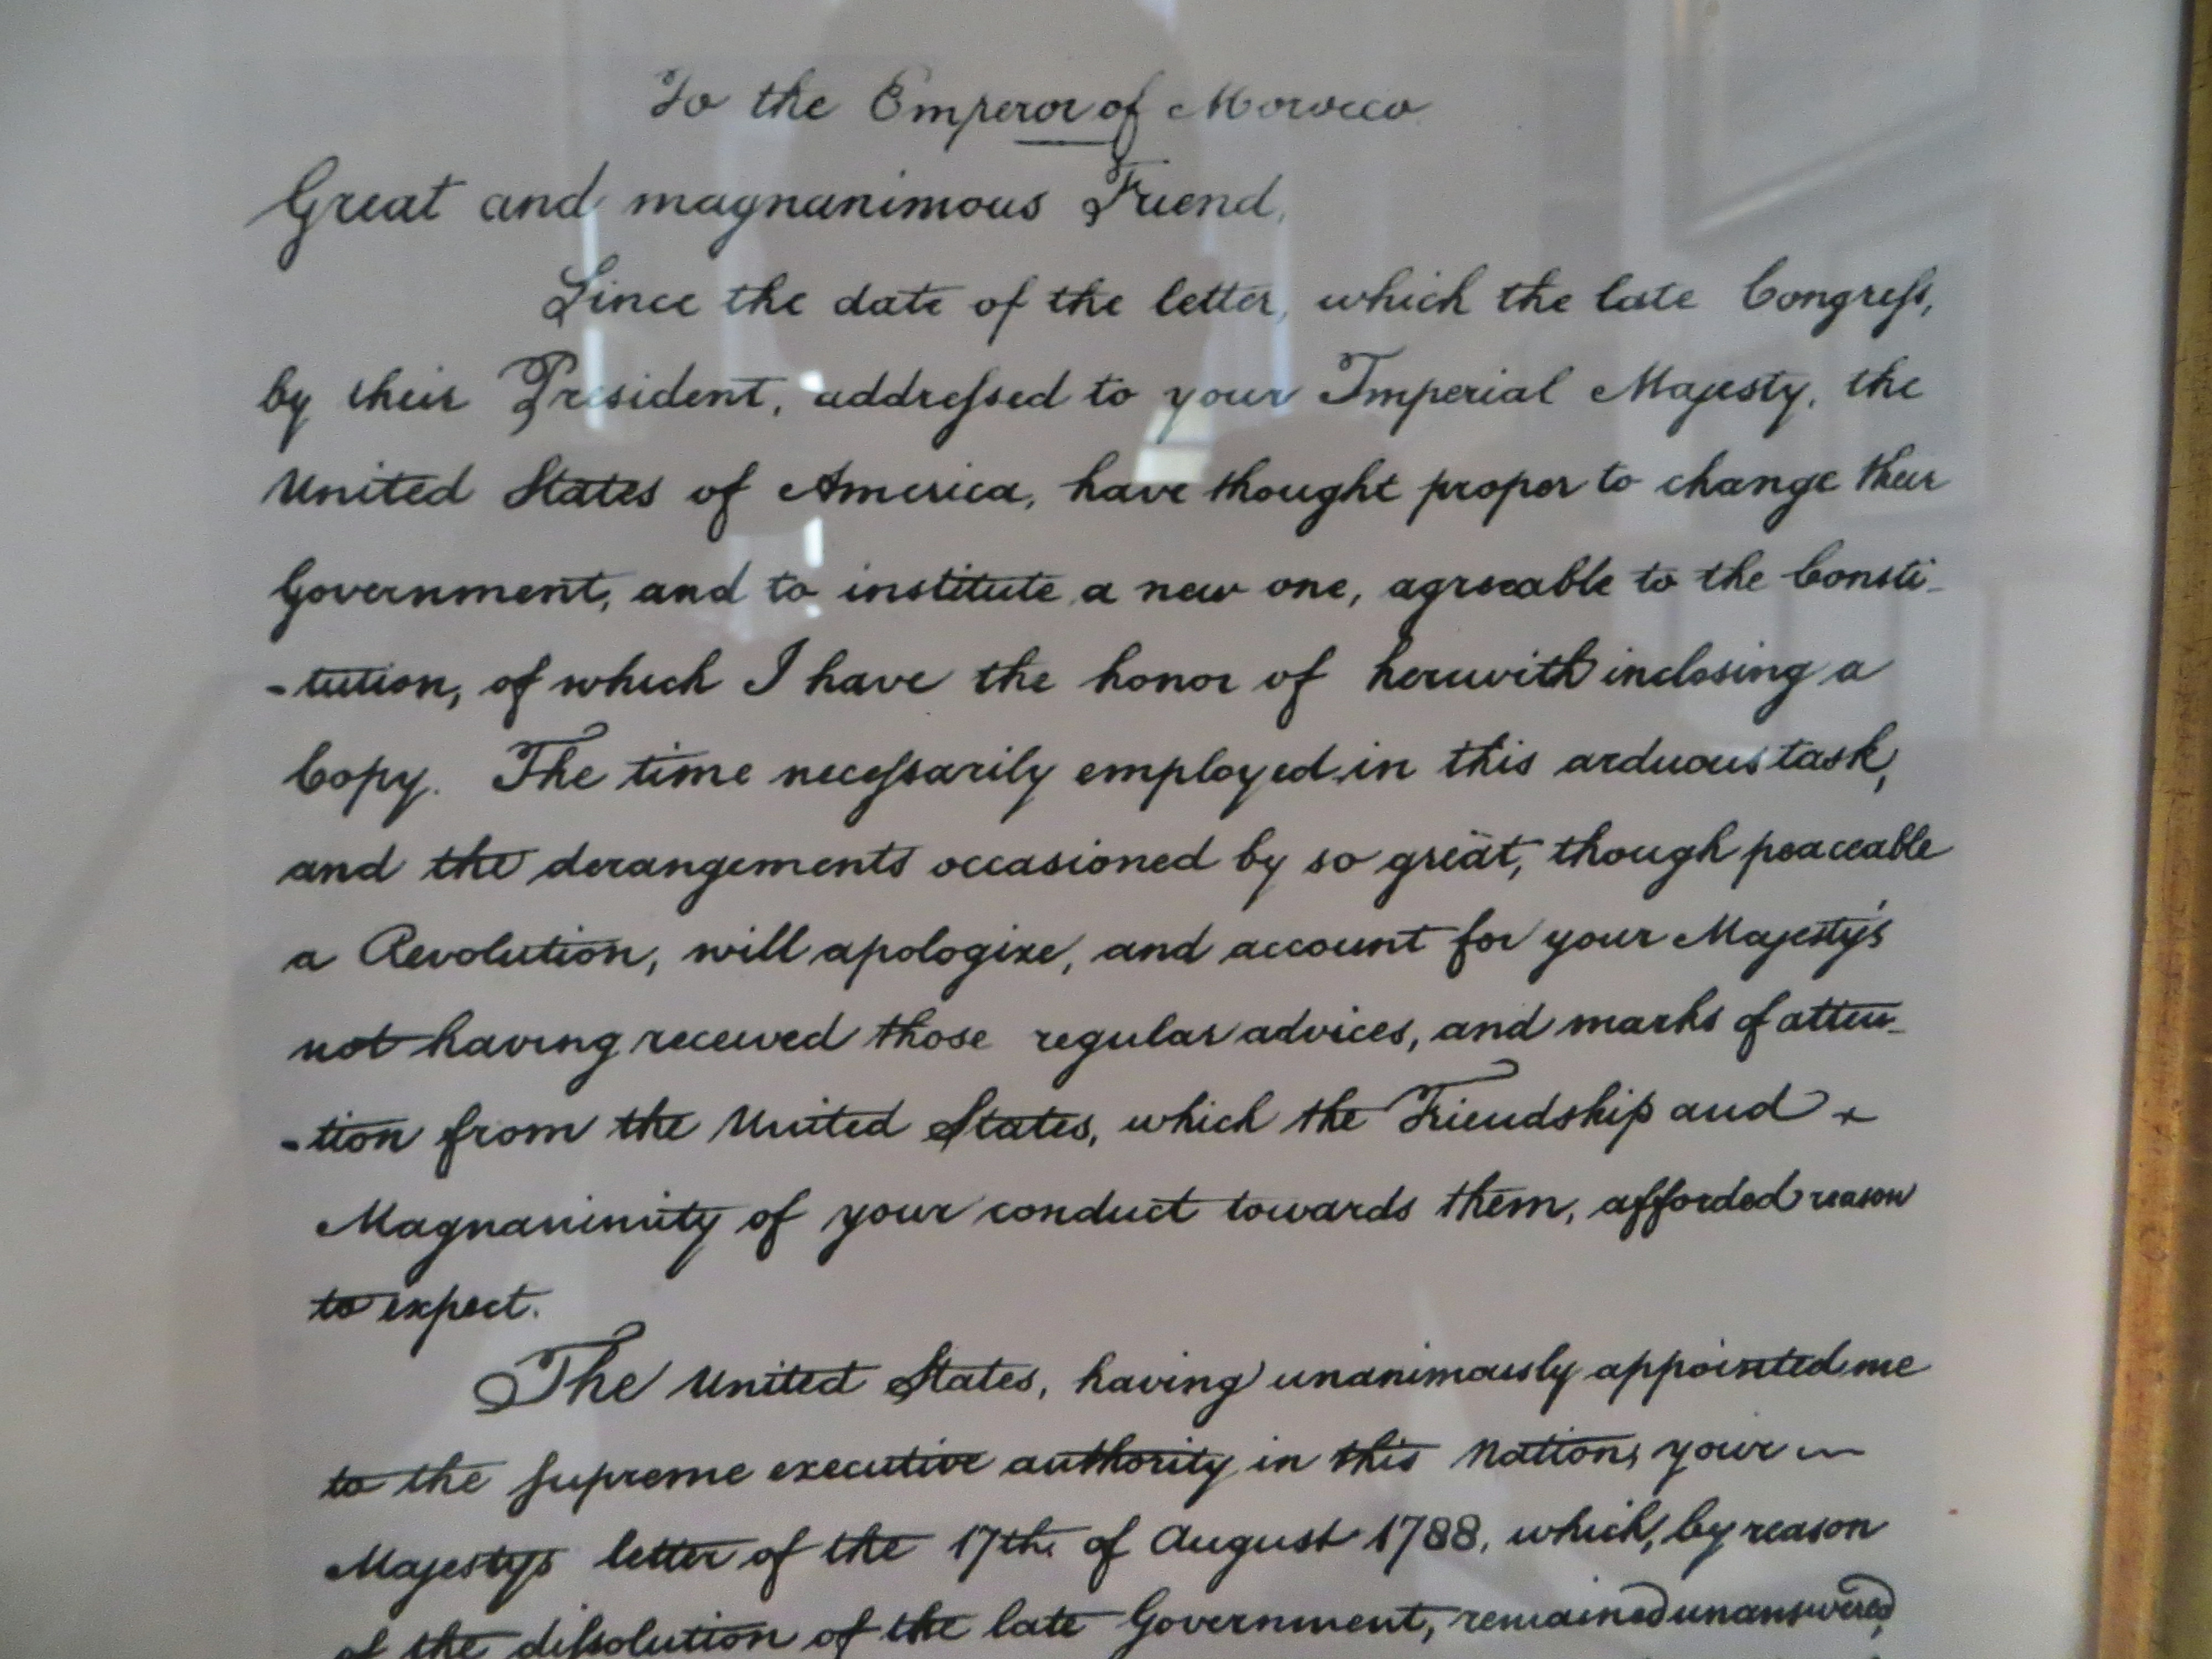 To the Emperor of Morocco
Great and magnanimous Friend,
Since the date of the letter, which the late Congreſs,
by their President, addreſsed to your Imperial Majesty, the
United States of America, have thought proper to change their
Government, and to institute a new one, agreeable to the Consti-
-tution, of which I have the honor of herewith inclosing a
Copy. The time neceſsarily employed in this arduous task,
and the derangements occasioned by so great, though peaceable
a Revolution, will apologize, and account for your Majesty's
not having received those regular advices, and marks of atten-
-tion from the United States, which the Friendship and
Magnanimity of your conduct towards them, afforded reason
to expect.
The United States, having unanimously appointed me
to the supreme executive authority in this Nation, your
Majesty's letter of the 17th. of August 1788, which, by reason
of the diſsolution of the late Government, remained unanswered,